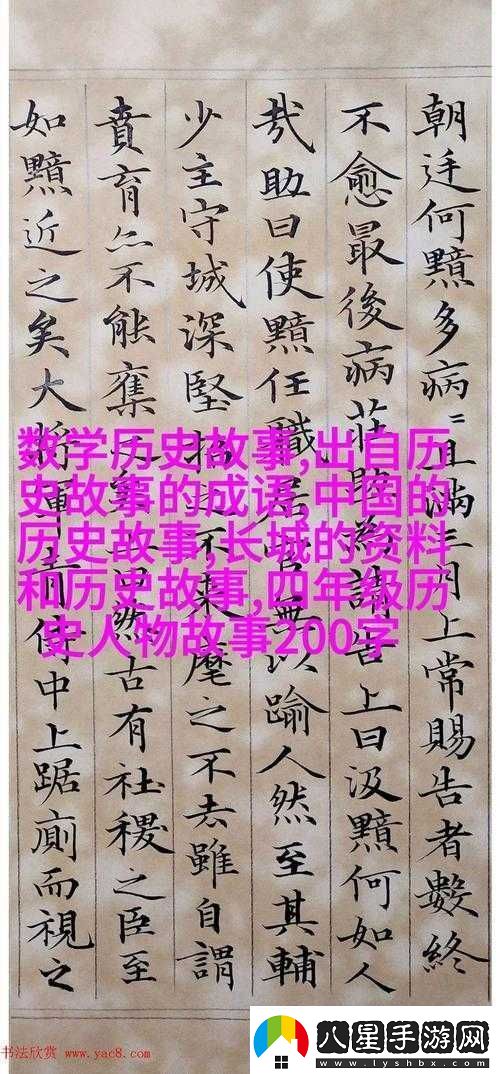 朝廷何黯多病〻且滿三月上常賜告者數終
不愈最後病莊助為請告上曰汲黯何如人
哉助曰使黯任職居官無以踰人然至其輔
少主守城深堅招之不來麾之不去雖自謂
賁育亦不能奪之矣上曰然古有社稷之臣至
如黯近之矣大將軍青侍中上踞廁而視之
数学历史故事,出自历
史故事的成语,中国的
历史故事,长城的资料
和历史故事,四年级历
史人物故事200字
书法欣赏 www.yac8.com
八星手游网
www.lyshbx.com